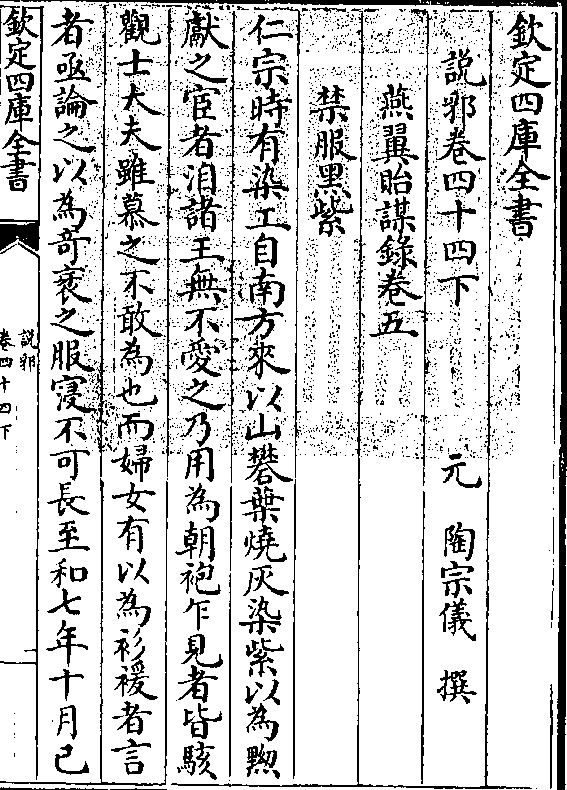 欽定四庫全書
說郛卷四十四下
元 陶宗儀 撰
燕翼貽謀錄卷五
禁服黑紫
仁宗時有染工自南方來以山礬葉燒灰染紫以為黝
獻之宦者洎諸王無不愛之乃用為朝袍乍見者皆駭
觀士大夫雖慕之不敢為也而婦女有以為衫褑者言
者亟論之以為竒衺之服寖不可長至和七年十月己
欽定四庫全書
說郛
卷四十四下
一